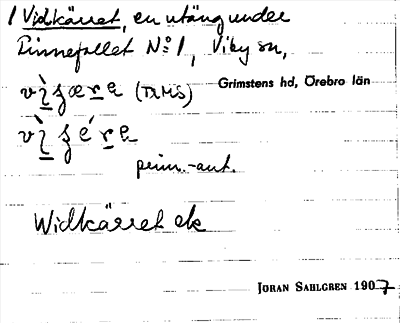 1 Vidkärret, en utäng under
Finnefallet No 1, Viby sn,
Grimstens hd, Örebro län
(TRMS)
prim.-ant.
Widkärret ek
JÖRAN SAHLGREN 1907